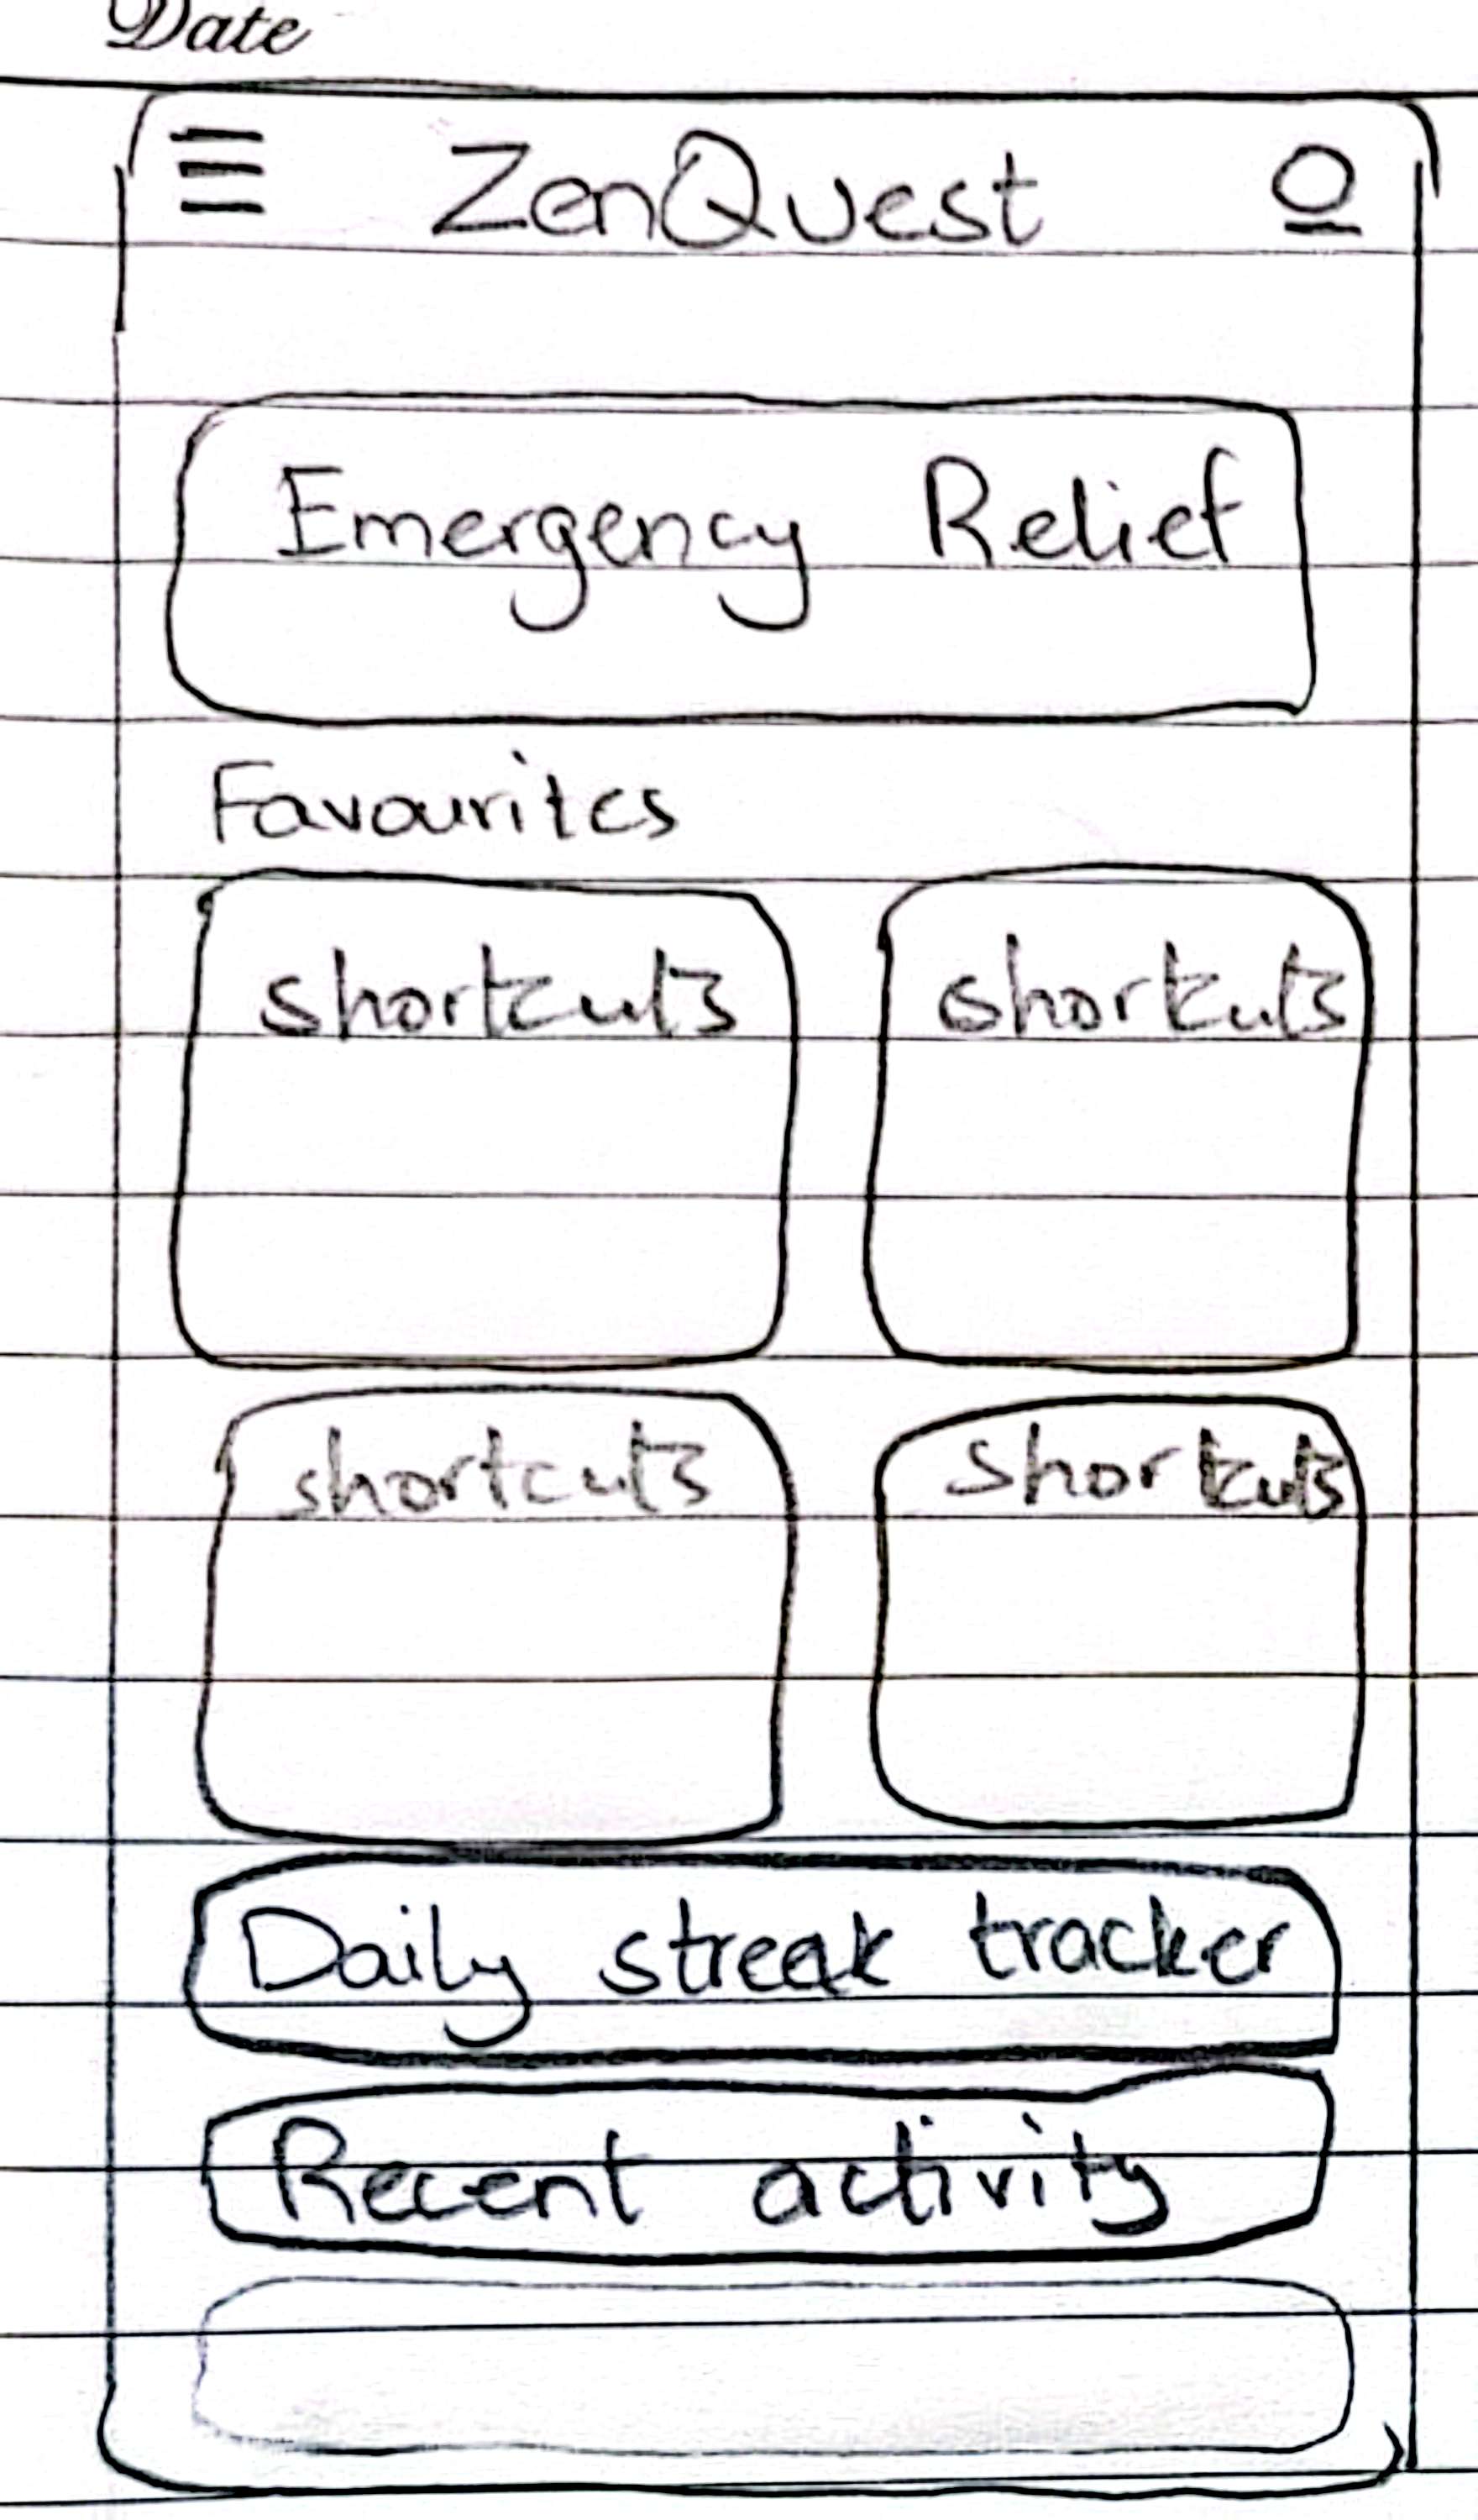 Date
ZenQuest
Emergency Relief
Favourites
shortcuts shortcuts
shortcuts shortcuts
Daily streak tracker
Recent activity